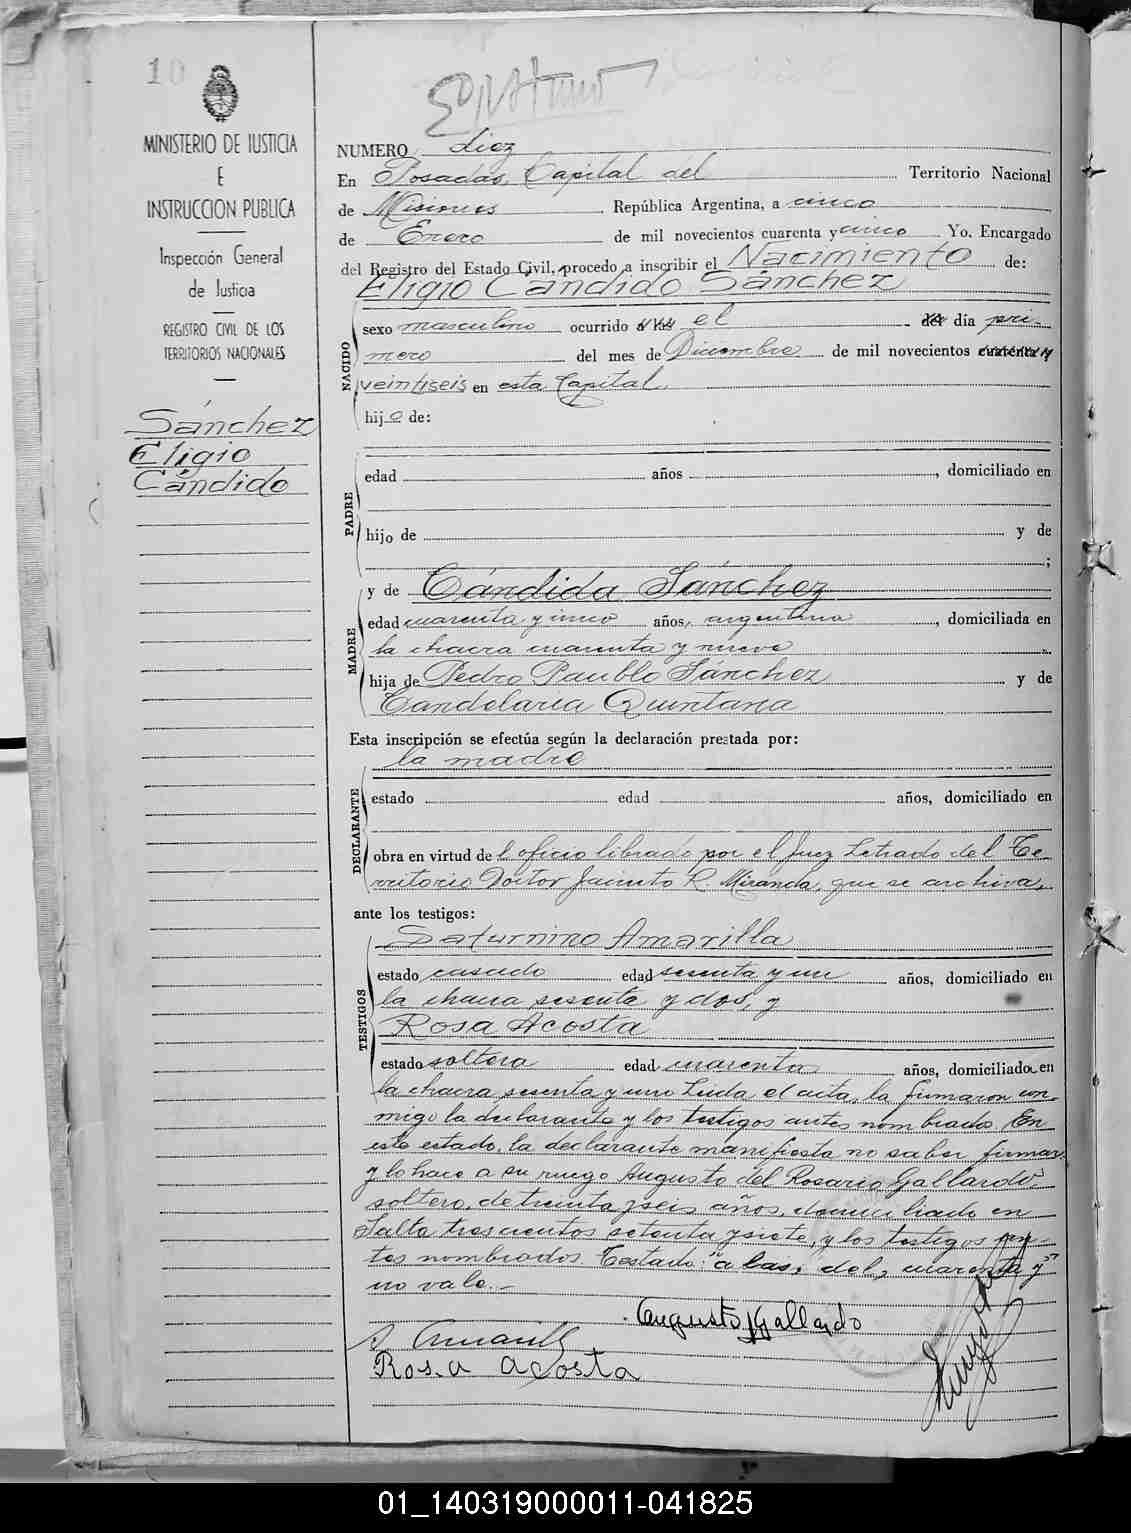 10
MINISTERIO DE JUSTICIA
E
INSTRUCCION PUBLICA
Inspección General
de Justicia
REGISTRO CIVIL DE LOS
TERRITORIOS NACIONALES
Sánchez
Eligio
Cándido
NUMERO Diez
En Posadas, Capital del Territorio Nacional
de Misiones, República Argentina, a cinco
de Enero de mil novecientos cuarenta y cinco Yo, Encargado
del Registro del Estado Civil, procedo a inscribir el Nacimiento de:
Eligio Cándido Sánchez
NACIDO
sexo masculino ocurrido a las el del día pri
mero del mes de Diciembre de mil novecientos cuarenta y
veintiseis en esta Capital.
hijo de:
PADRE
edad años, domiciliado en
hijo de y de
;
MADRE
y de Cándida Sánchez
edad cuarenta y cinco años, argentina, domiciliada en
la chacra cuarenta y nueve
hija de Pedro Paublo Sánchez y de
Candelaria Quintana
Esta inscripción se efectúa según la declaración prestada por:
la madre
DECLARANTE
estado edad años, domiciliado en
obra en virtud del oficio librado por el Juez Letrado del Te-
rritorio Doctor Jacinto R. Miranda, que se archiva,
ante los testigos:
TESTIGOS
Saturnino Amarilla
estado casado edad sesenta y un años, domiciliado en
la chacra sesenta y dos, y
Rosa Acosta
estado soltera edad cuarenta años, domiciliada en
la chacra sesenta y uno Leida el acta, la firmaron con
migo la declarante y los testigos antes nombrados. En
este estado, la declarante manifiesta no saber firmar
y lo hace a su ruego Augusto del Rosario Gallardo,
soltero, de treinta y seis años, domiciliado en
Salta trescientos setenta y siete, y los testigos an-
tes nombrados. Testado: "a las, del, cuarenta y"
no vale.-
Augusto Gallardo
S Amarilla
Rosa Acosta
01_140319000011-041825